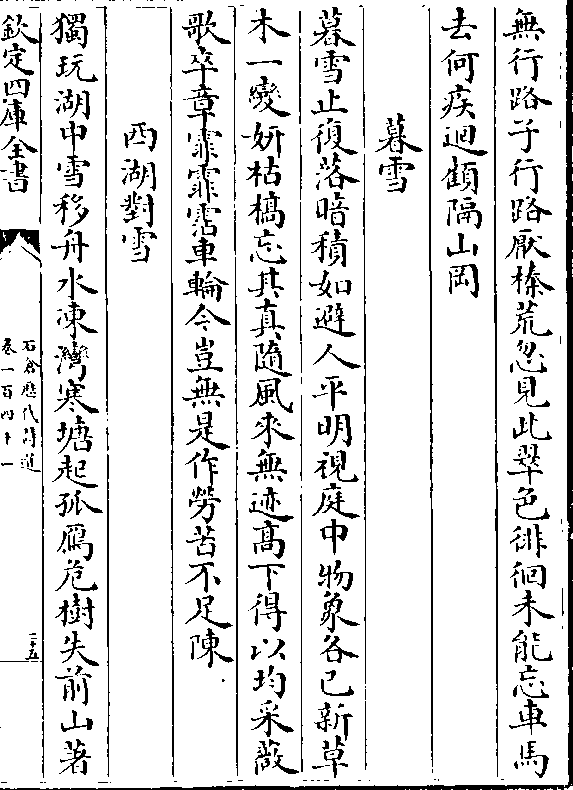 無行路子行路厭榛荒忽見此翠色徘徊未能忘車馬
去何疾迴顧隔山岡
暮雪
暮雪止復落暗積如避人平明視庭中物象各已新草
木一變妍枯槁忘其真隨風來無迹髙下得以均采薇
歌卒章霏霏霑車輪今豈無是作勞苦不足陳
西湖對雪
獨玩湖中雪移舟水凍灣寒塘起孤鴈危樹失前山著
欽定四庫全書
石倉歷代詩選
卷一百四十一
二十五